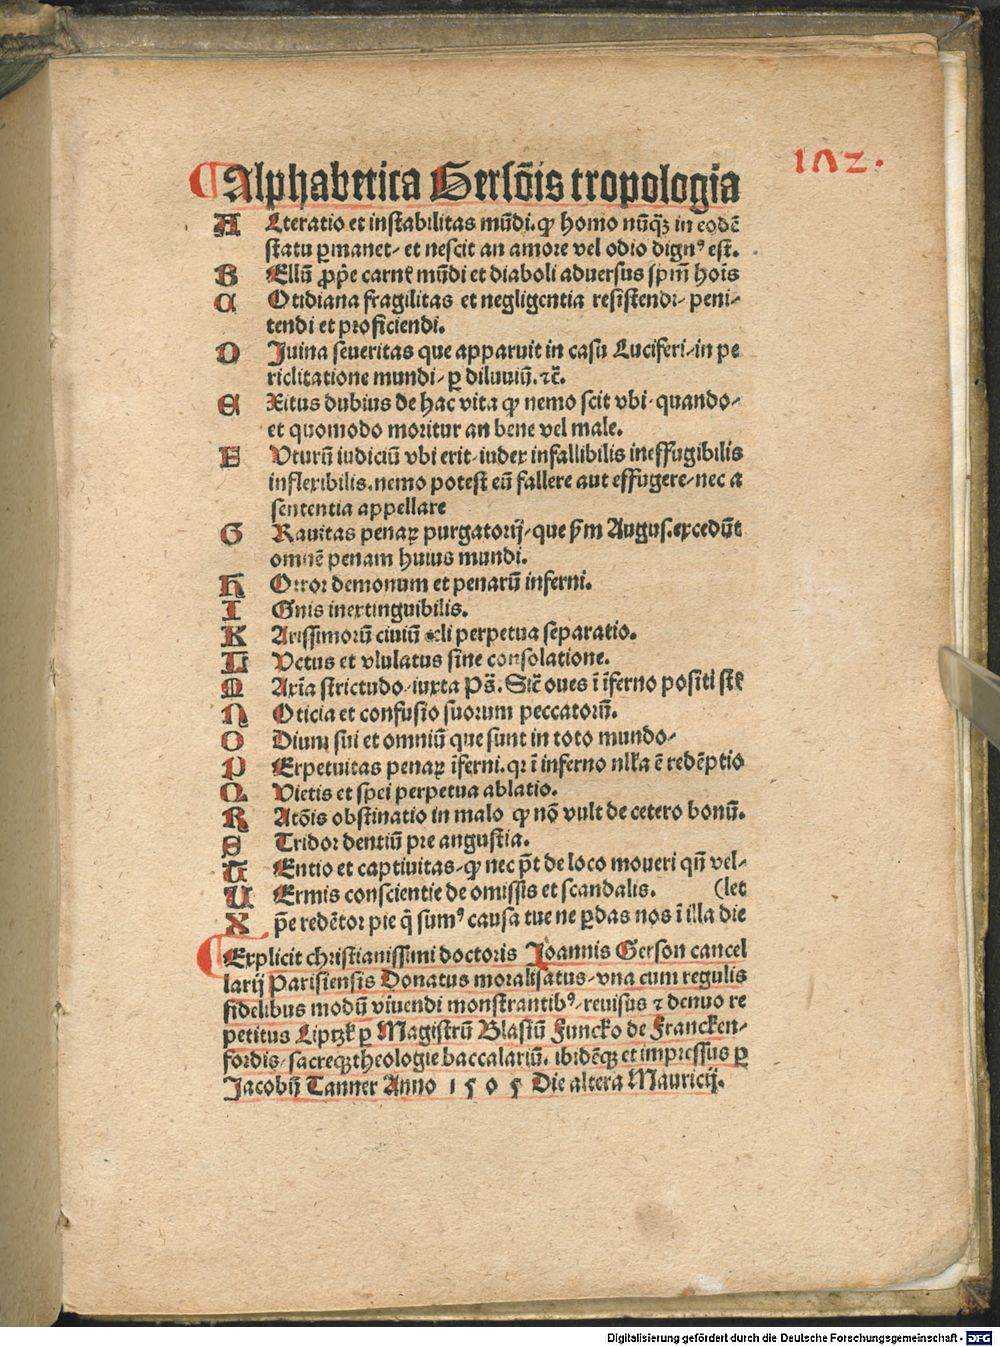 1Λ2.
¶ Alphabetica Gersōis tropologia
A Lteratio et instabilitas mūdi. qꝛ homo nūqꝫ in eodē
statu ꝑmanet/ et nescit an amore vel odio dignꝰ est.
B Ellū ꝓpꝛ̄e carnē mūdi et diaboli aduersus spm̄ hoīs
C Otidiana fragilitas et negligentia resistendi/ peni/
tendi et proficiendi.
D Iuina seueritas que apparuit in casu Luciferi/ in pe
riclitatione mundi/ ꝑ diluuiū. ⁊c̄.
E Xitus dubius de hac vita qꝛ nemo scit vbi/ quando/
et quomodo moritur an bene vel male.
F Vturū iudiciū vbi erit/ iudex infallibilis ineffugibilis
inflexibilis. nemo potest eū fallere aut effugere/ nec a
sententia appellare
G Rauitas penaꝝ purgatorij/ que ẜm Augus. excedūt
omnē penam huius mundi.
H Orror demonum et penarū inferni.
I Gnis inextinguibilis.
K Arissimorū ciuiū celi perpetua separatio.
L Vctus et vlulatus sine consolatione.
M Axīa strictudo/ iuxta Ps̄. Sic̄ oues ī īferno positi st̄
N Oticia et confusio suorum peccatorū.
O Dium sui et omniū que sunt in toto mundo/
P Erpetuitas penaꝝ īferni. qꝛ ī inferno nlla ē redēptio
Q Vietis et spei perpetua ablatio.
R Atōis obstinatio in malo qꝛ nō vult de cetero bonū.
S Tridor dentiū pre angustia.
T Entio et captiuitas/ qꝛ nec pōt de loco moueri qn̄ vel/
V Ermis conscientie de omissis et scandalis. (let
X pē redētor pie q̄ sumꝰ causa tue ne ꝑdas nos ī illa die
¶ Explicit christianissimi doctoris Joannis Gerson cancel
larij Parisiensis Donatus moralisatus/ vna cum regulis
fidelibus modū viuendi monstrantibꝰ/ reuisus ⁊ denuo re
petitus Liptzk ꝑ Magistrū Blasiū Funcko de Francken/
fordis/ sacreqꝫ theologie baccalariū. ibidēqꝫ et impressus ꝑ
Jacobū Tanner Anno 1505 Die altera Mauricij.
Digitalisierung gefördert durch die Deutsche Forschungsgemeinschaft - DFG